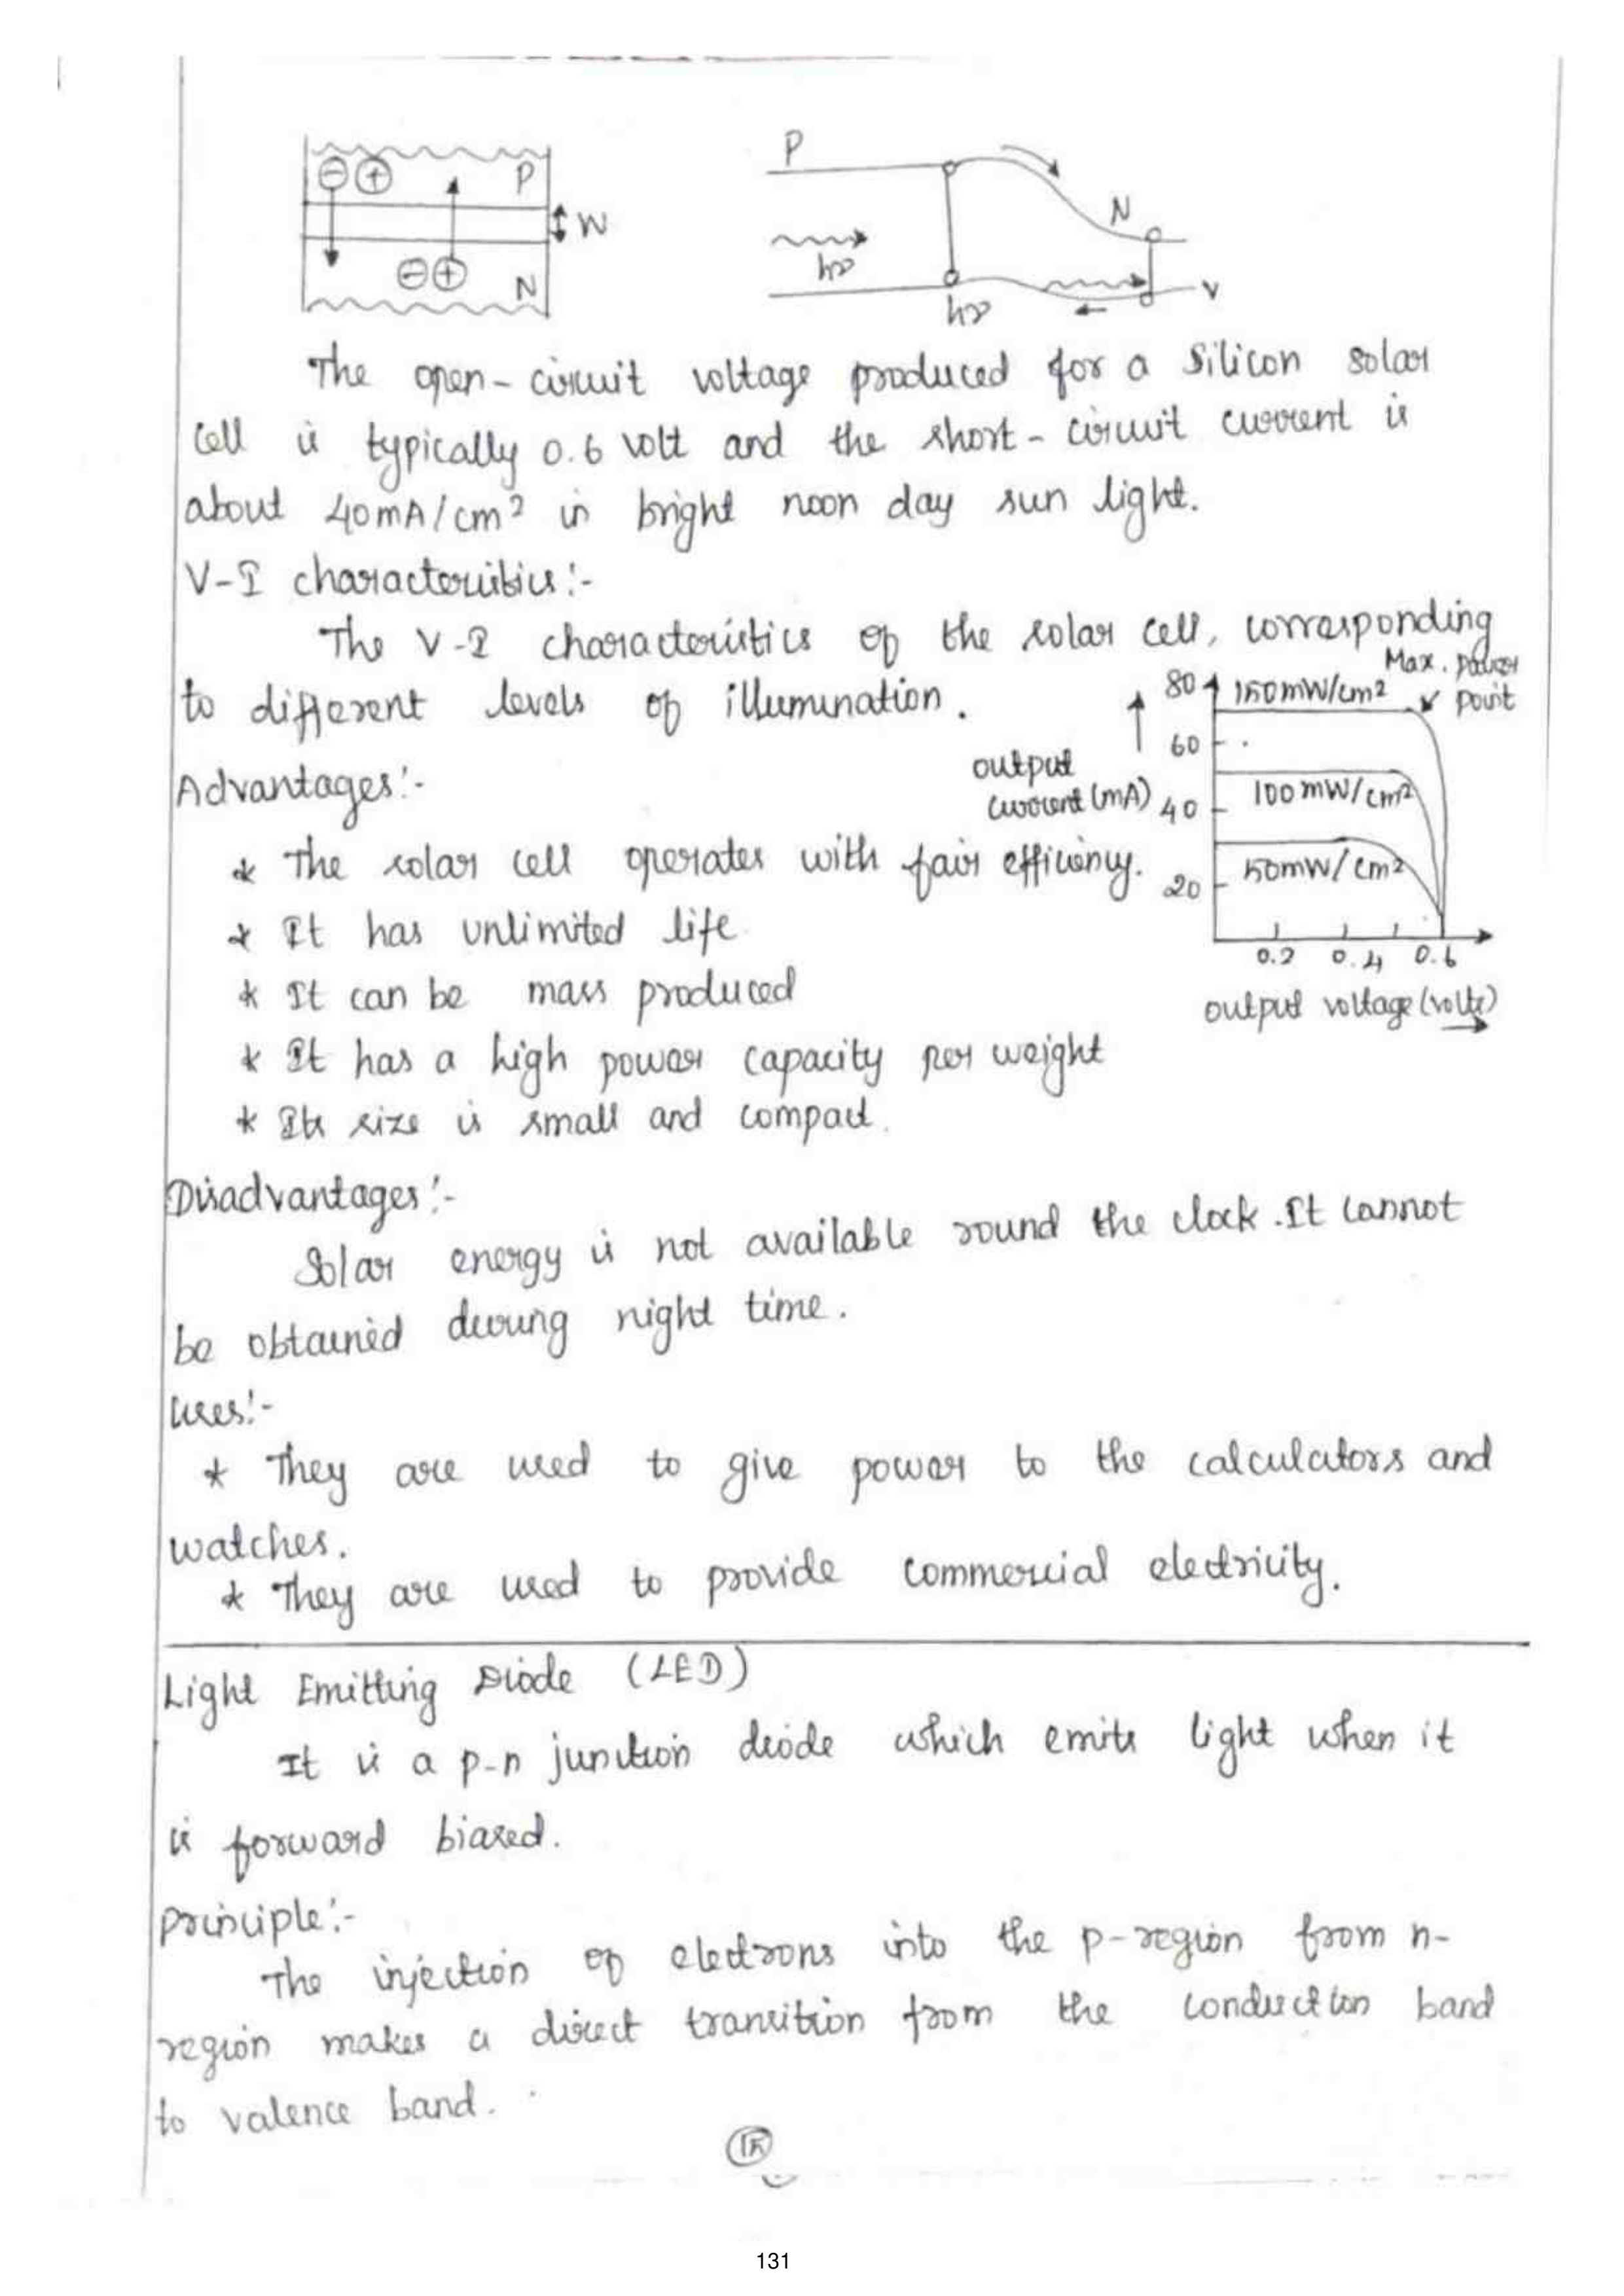 P
W
N
P
N
hν
hν
V
The open-circuit voltage produced for a Silicon solar
cell is typically 0.6 volt and the short-circuit current is
about 40mA/cm² in bright noon day sun light.
V-I characteristics:-
The V-I characteristics of the solar cell, corresponding
to different levels of illumination.
Max. power
point
80
150mW/cm²
60
output
current (mA)
40
100mW/cm²
20
50mW/cm²
0.2 0.4 0.6
output voltage (volts)
Advantages:-
* The solar cell operates with fair efficiency.
* It has unlimited life
* It can be mass produced
* It has a high power capacity per weight
* Its size is small and compact.
Disadvantages:-
Solar energy is not available round the clock. It cannot
be obtained during night time.
Uses:-
* They are used to give power to the calculators and
watches.
* They are used to provide commercial electricity.
Light Emitting Diode (LED)
It is a p-n junction diode which emits light when it
is forward biased.
Principle:-
The injection of electrons into the p-region from n-
region makes a direct transition from the conduction band
to valence band.
15
131